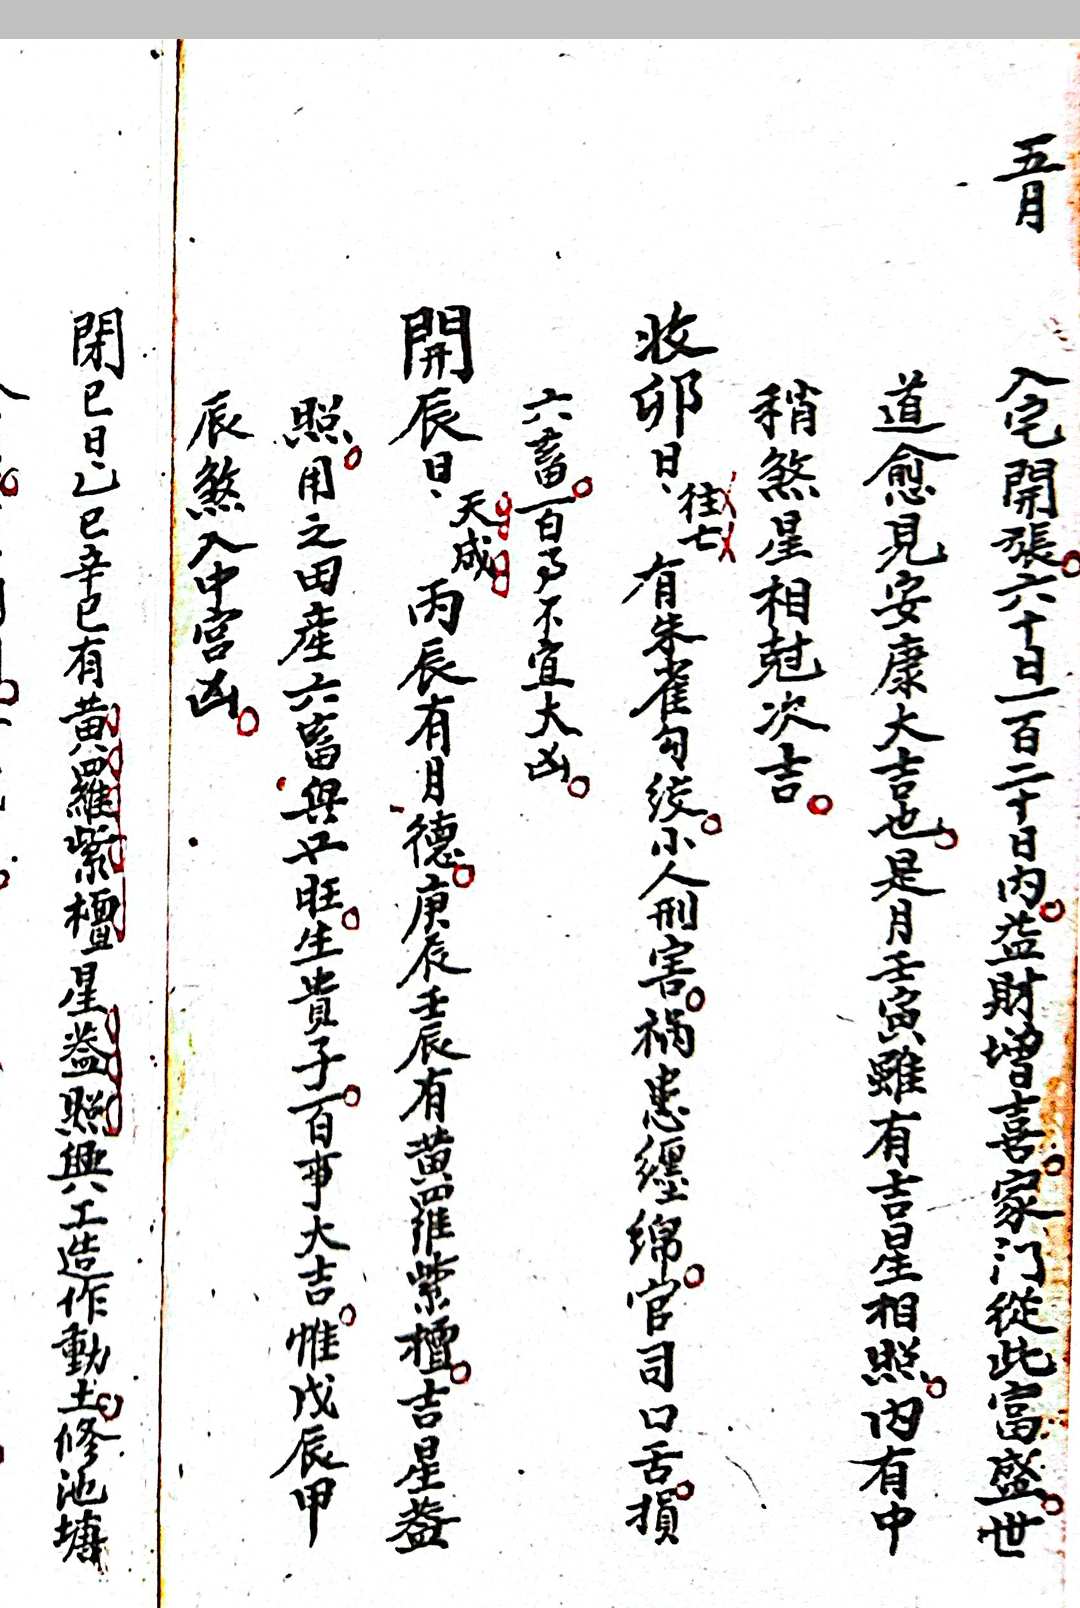 五月
入宅開張六十日一百二十日內益財增喜家门從此富盛世
道愈見安康大吉也是月壬寅雖有吉星相照内有中
稍煞星相尅次吉
收卯日往亡有朱雀勾絞小人刑害禍患纏綿官司口舌損
六畜百事不宜大凶
開辰日天成丙辰有月德庚辰壬辰有黄羅紫檀吉星葢
照用之田產六畜興旺生貴子百事大吉惟戊辰甲
辰煞入中宮凶
閉巳日乙巳辛巳有黄羅紫檀星葢照興工造作動土修池塘